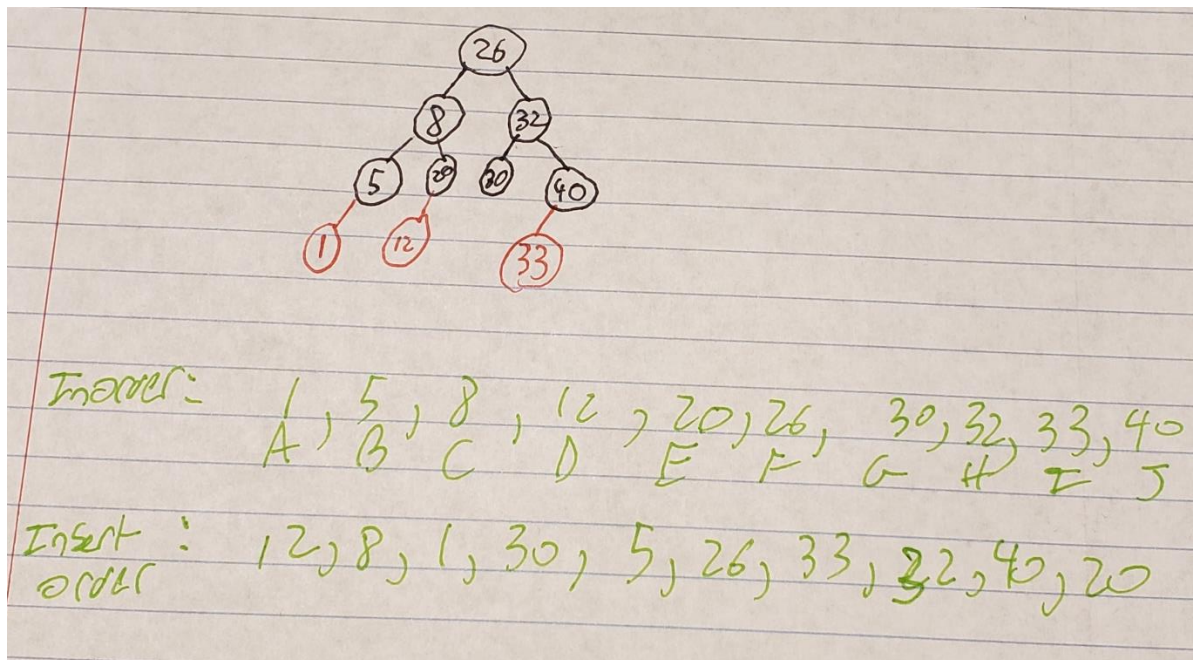 26
8 32
5 20 30 40
1 12 33
Inorder: 1, 5, 8, 12, 20, 26, 30, 32, 33, 40
A B C D E F G H I J
Insert : 12, 8, 1, 30, 5, 26, 33, 32, 40, 20
order